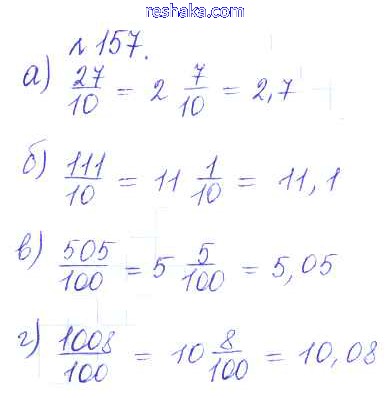 reshaka.com
№ 157.
а) 27/10 = 2 7/10 = 2,7
б) 111/10 = 11 1/10 = 11,1
в) 505/100 = 5 5/100 = 5,05
г) 1008/100 = 10 8/100 = 10,08